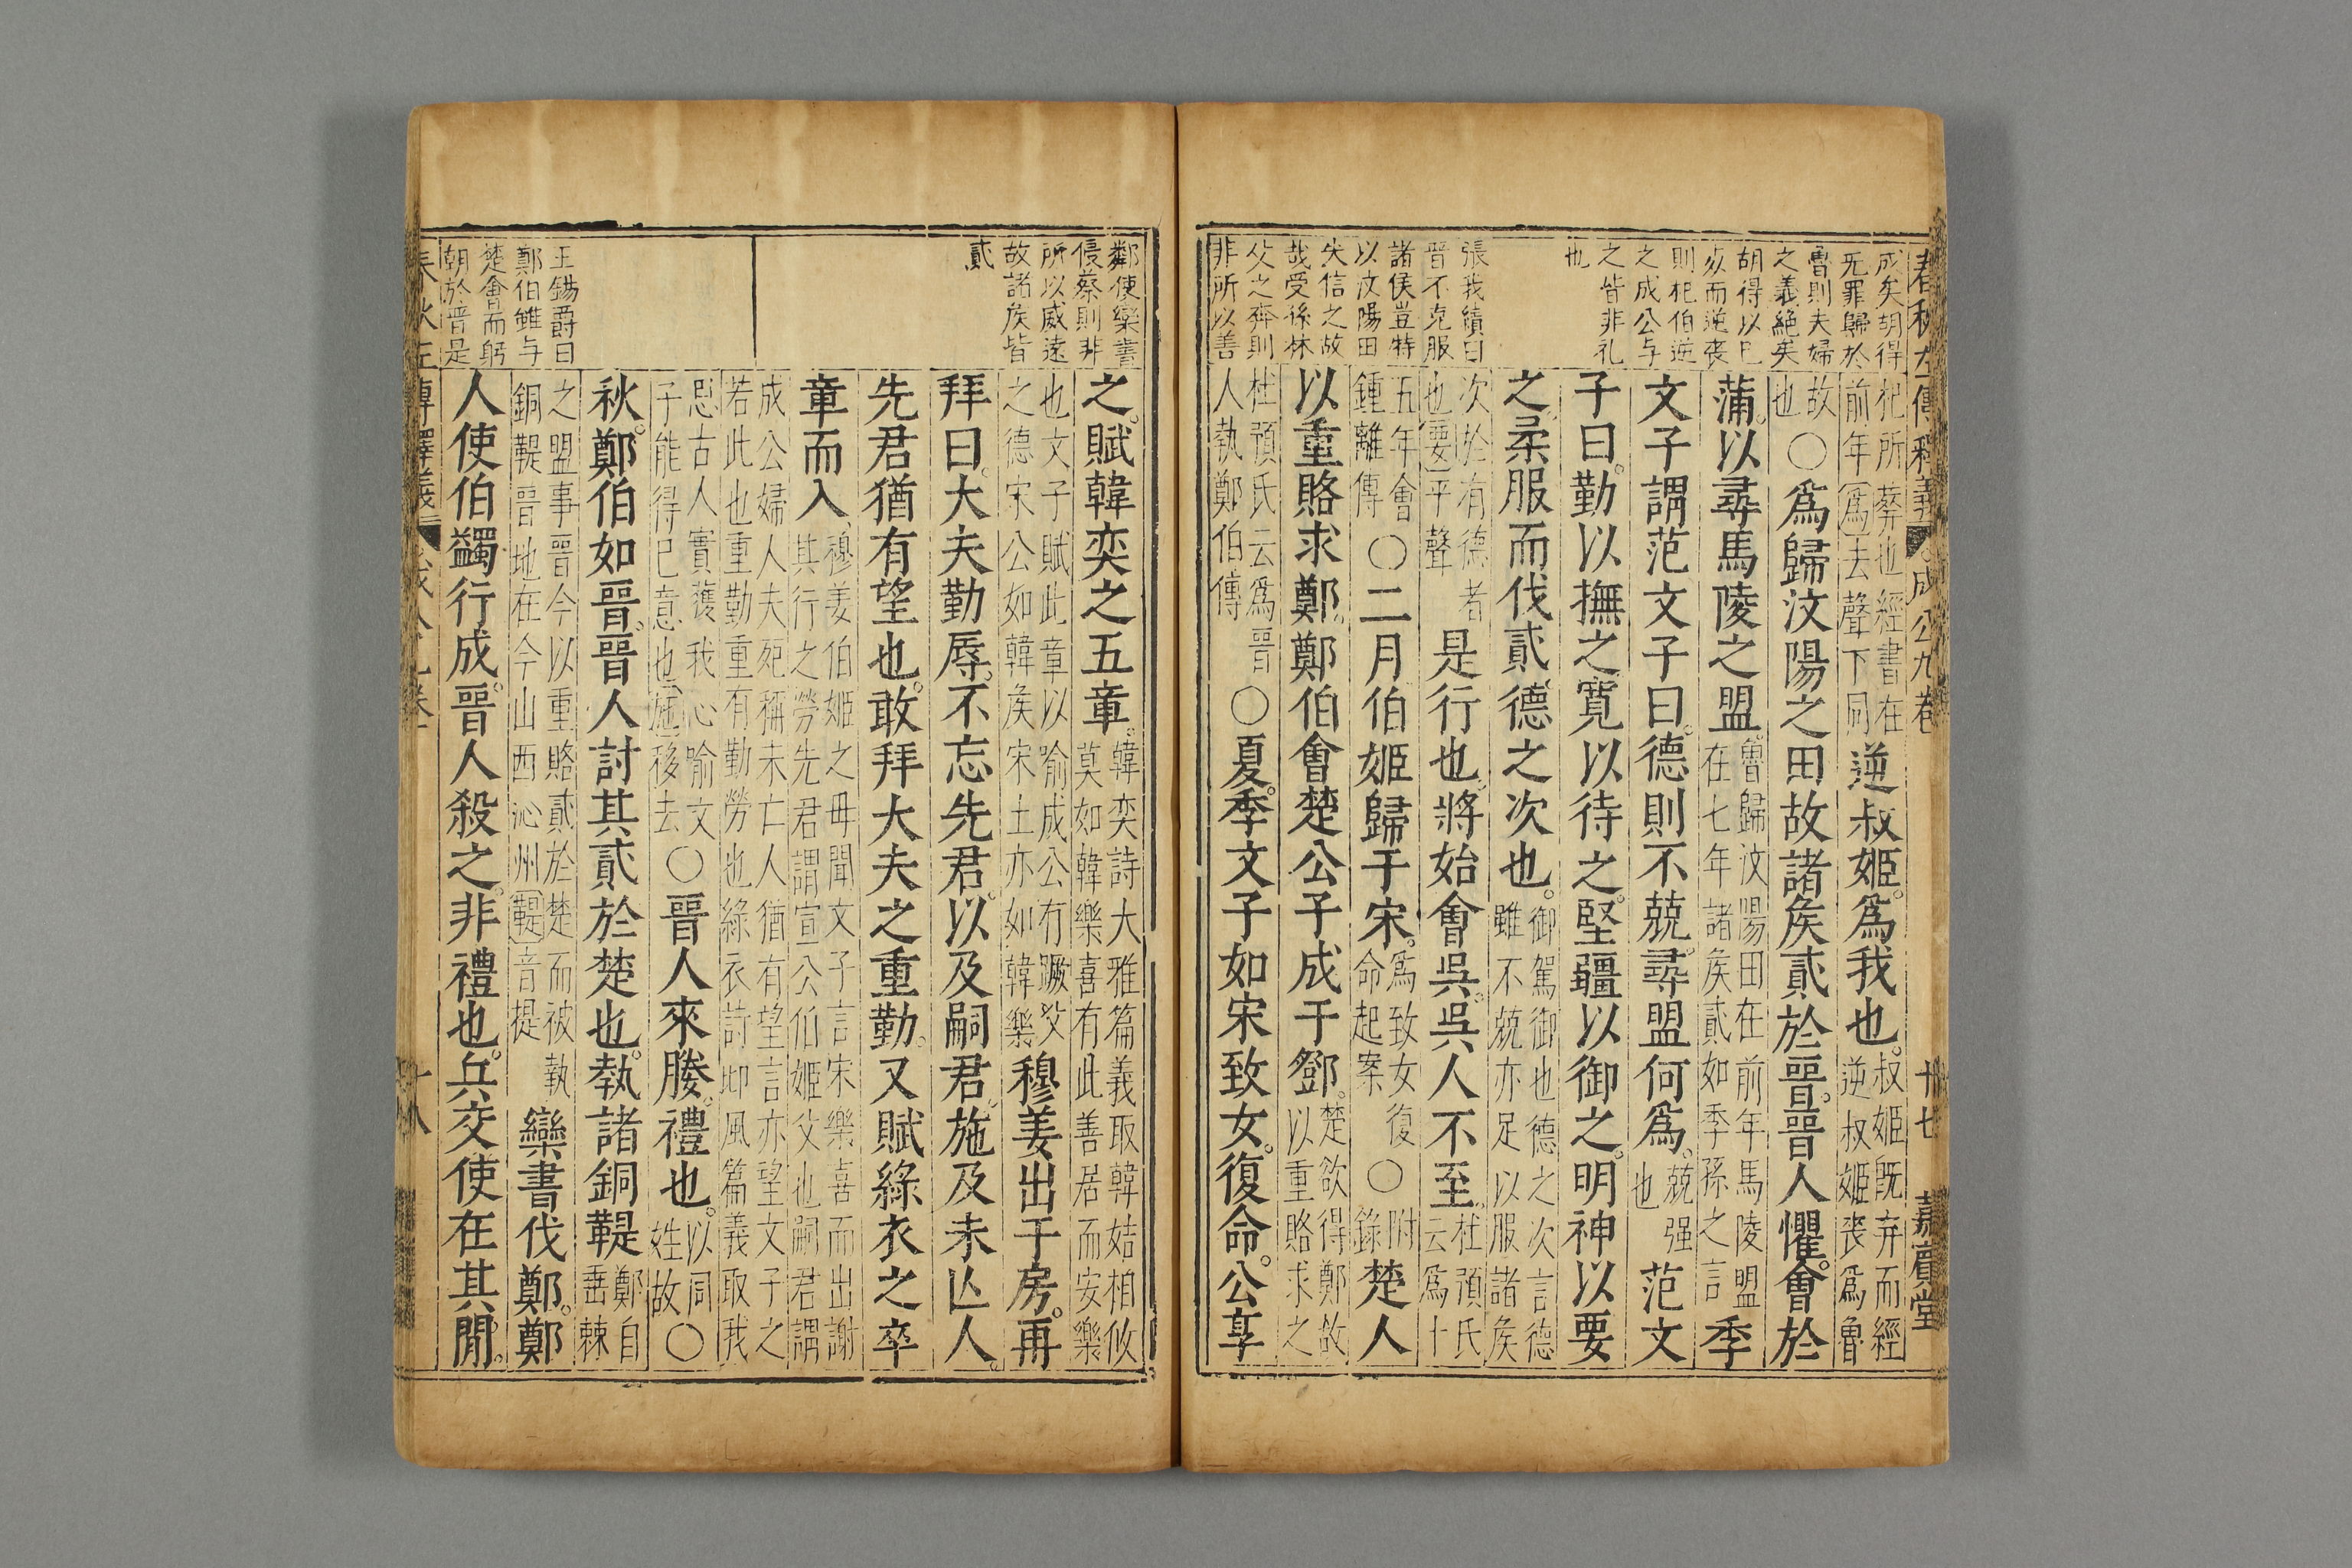 成矣胡得
无罪歸於
魯則夫婦
之義絕矣
胡得以已
則杞伯逆
之成公与
之皆非礼
也
張我績曰
晉不克服
諸侯豈特
以汶陽田
失信之故
哉受孫林
父之奔則
非所以善
成公九卷
卅七
嘉賓堂
杞所葬也經書在
前年爲去聲下同
逆叔姬爲我也
叔姬旣弃而經
逆叔姬喪爲魯
故
也
○爲歸汶陽之田故諸矦貳於晉晉人懼會於
蒲以尋馬陵之盟
魯歸汶陽田在前年馬陵盟
在七年諸矦貳如季孫之言
季
文子謂范文子曰德則不競尋盟何爲
競强
也
范文
子曰勤以撫之寬以待之堅疆以御之明神以要
之柔服而伐貳德之次也
御駕御也德之次言德
雖不兢亦足以服諸矦
次於有德者
也要平聲
是行也將始會吳吳人不至
杜預氏
云爲十
五年會
鍾離傳
○二月伯姬歸于宋
爲致女復
命起案
○
附
錄
楚人
以重賂求鄭鄭伯會楚公子成于鄧
楚欲得鄭故
以重賂求之
杜預氏云爲晉
人執鄭伯傳
○夏季文子如宋致女復命公享
鄰使欒書
侵蔡則非
所以威遠
故諸矦皆
貳
王錫爵曰
鄭伯雖与
楚會而躬
朝於晉是
之賦韓奕之五章
韓奕詩大雅篇義取韓姞相攸
莫如韓樂喜有此善居而安樂
也文子賦此章以喻成公有蹶父
之德宋公如韓矦宋土亦如韓樂
穆姜出于房再
拜曰大夫勤辱不忘先君以及嗣君施及未亾人
先君猶有望也敢拜大夫之重勤又賦綠衣之卒
章而入
穆姜伯姬之母聞文子言宋樂喜而出謝
其行之勞先君謂宣公伯姬父也嗣君謂
成公婦人夫死稱未亡人猶有望言亦望文子之
若此也重勤重有勤勞也綠衣詩邶風篇義取我
思古人實獲我心喻文
子能得已意也施移去
○晉人來媵禮也
以同
姓故
○
秋鄭伯如晉晉人討其貳於楚也執諸銅鞮
鄭自
埀棘
之盟事晉今以重賂貳於楚而被執
銅鞮晉地在今山西沁州鞮音提
欒書伐鄭鄭
人使伯蠲行成晉人殺之非禮也兵交使在其閒